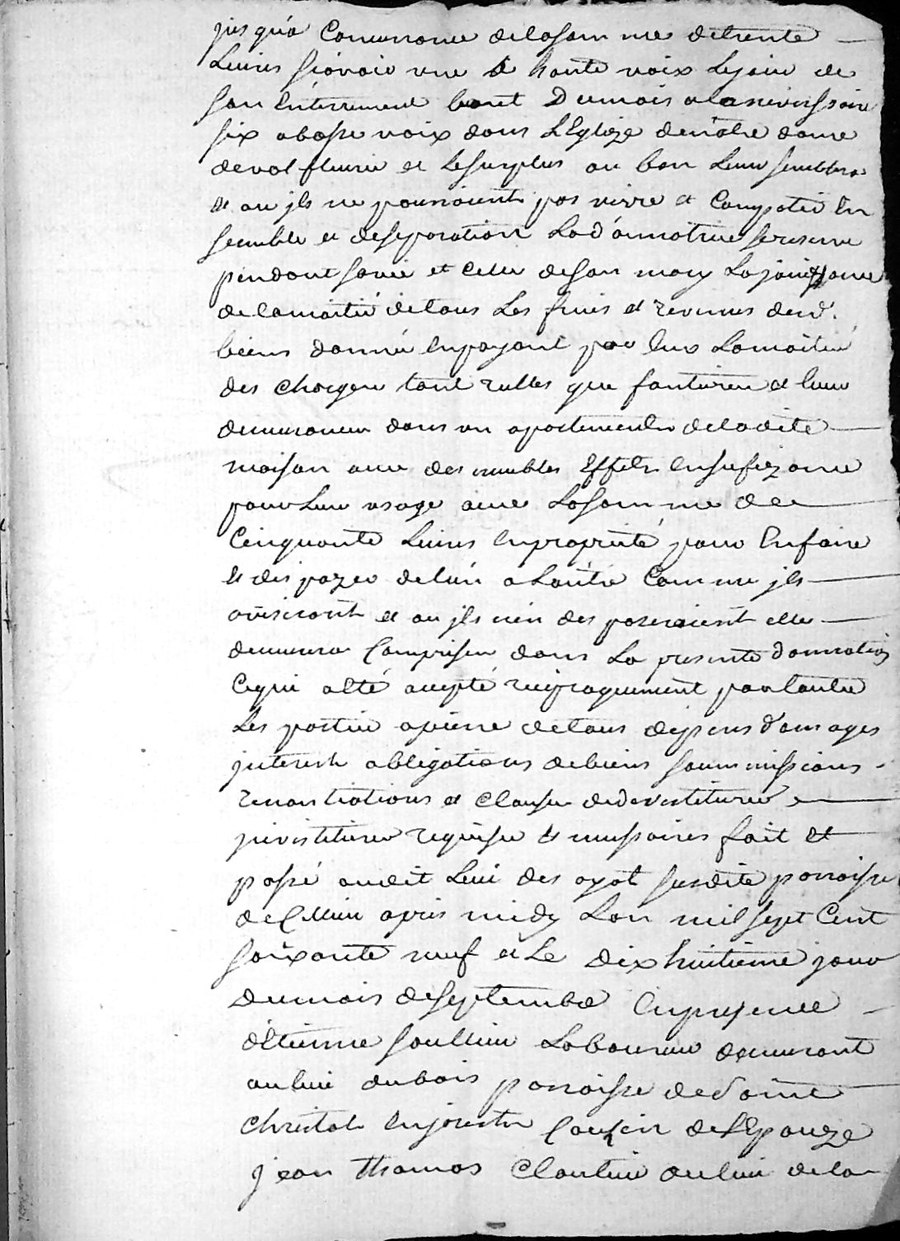 jusqu'a Concurrance delasomme detrente
Livres scavoir une a haute voix Lejour de
son Enterrement bout Dumois alaniverssaire
six abasse voix dans L'Eglize denôtre dame
deval fleurie et Lesurplus ou bon Leur semblera
et ou jls ne pourroient pas vivre et Compatir En
semble et deseparation Lad. donnatrice sereserve
pendant savie et celle deson mary Lajouissance
de lamoitié detous Les fruis et revenus desd.
biens donnés enpayant par Eux Lamoitié
des charges tant reelles que fontieres et leur
demeureront dans un apartement delad ite
maison avec des meubles Effets ensufizance
pour Leur usage avec Lasomme de
Cinquante Livres enpropriété pour Enfaire
et dispozer delun a Lautre Comme jls
aviseront et ou jls n'en disposeraient elle
demeurera Comprise dans La presente donnation
Cequi aété accepté reciproquement par toutes
Les parties apeine detous depens domages
jnterests obligations debiens soummissions
renontiations et clauses dedevestitures
jnvestitures requises et nessaires fait et
passé audit Lieu des ayot susdite parroisse
de après midy Lan mil sept Cent
soixante neuf et Le dix huitieme jour
Dumois deseptembre Enpresence
d'Etienne Laboureur demeurant
aulieu dubois parroisse de Saint
Christoh enjarestz Cousin de L'Epouze
jean thomas Cloutier aulieu dela